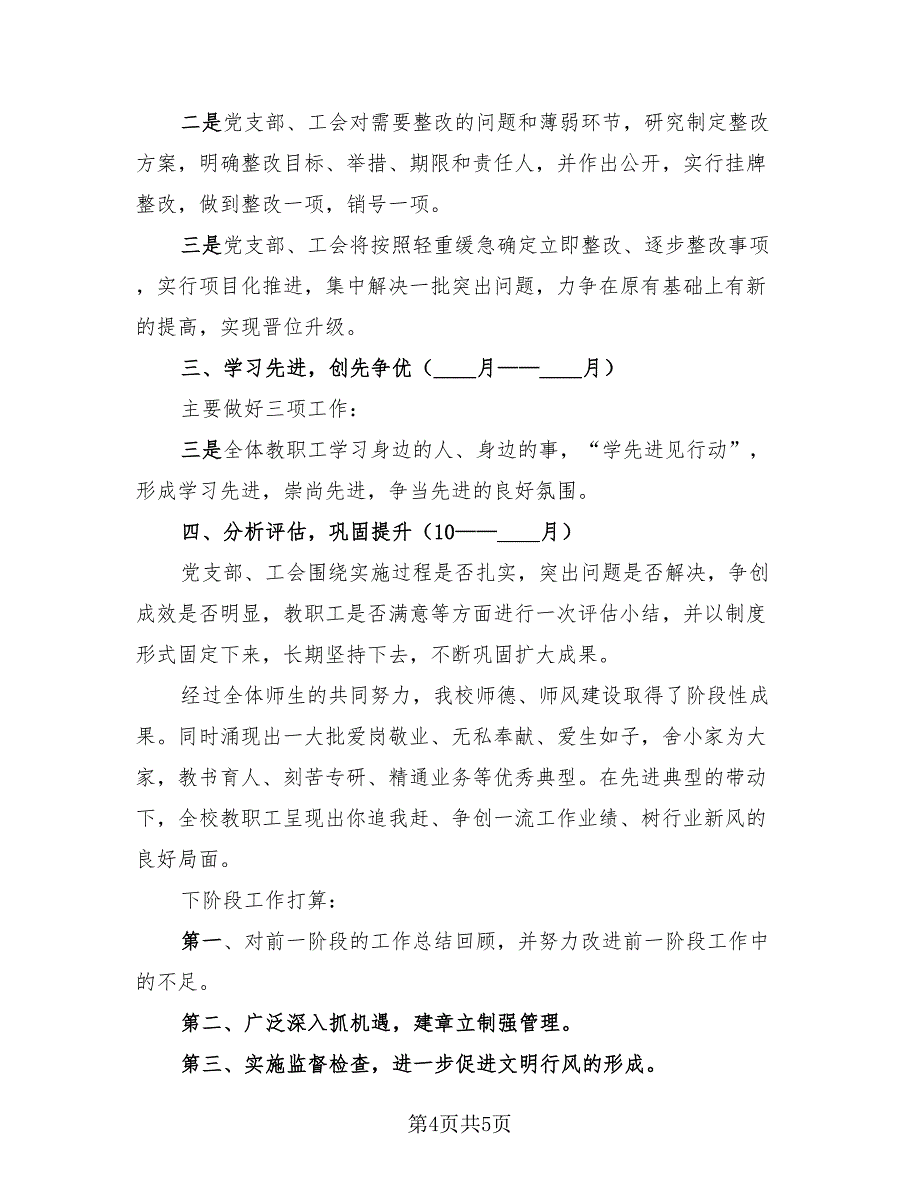 二是党支部、工会对需要整改的问题和薄弱环节，研究制定整改
方案，明确整改目标、举措、期限和责任人，并作出公开，实行挂牌
整改，做到整改一项，销号一项。
三是党支部、工会将按照轻重缓急确定立即整改、逐步整改事项
，实行项目化推进，集中解决一批突出问题，力争在原有基础上有新
的提高，实现晋位升级。
三、学习先进，创先争优（____月——____月）
主要做好三项工作：
三是全体教职工学习身边的人、身边的事，“学先进见行动”，
形成学习先进，崇尚先进，争当先进的良好氛围。
四、分析评估，巩固提升（10——____月）
党支部、工会围绕实施过程是否扎实，突出问题是否解决，争创
成效是否明显，教职工是否满意等方面进行一次评估小结，并以制度
形式固定下来，长期坚持下去，不断巩固扩大成果。
经过全体师生的共同努力，我校师德、师风建设取得了阶段性成
果。同时涌现出一大批爱岗敬业、无私奉献、爱生如子，舍小家为大
家，教书育人、刻苦专研、精通业务等优秀典型。在先进典型的带动
下，全校教职工呈现出你追我赶、争创一流工作业绩、树行业新风的
良好局面。
下阶段工作打算：
第一、对前一阶段的工作总结回顾，并努力改进前一阶段工作中
的不足。
第二、广泛深入抓机遇，建章立制强管理。
第三、实施监督检查，进一步促进文明行风的形成。
第4页共5页